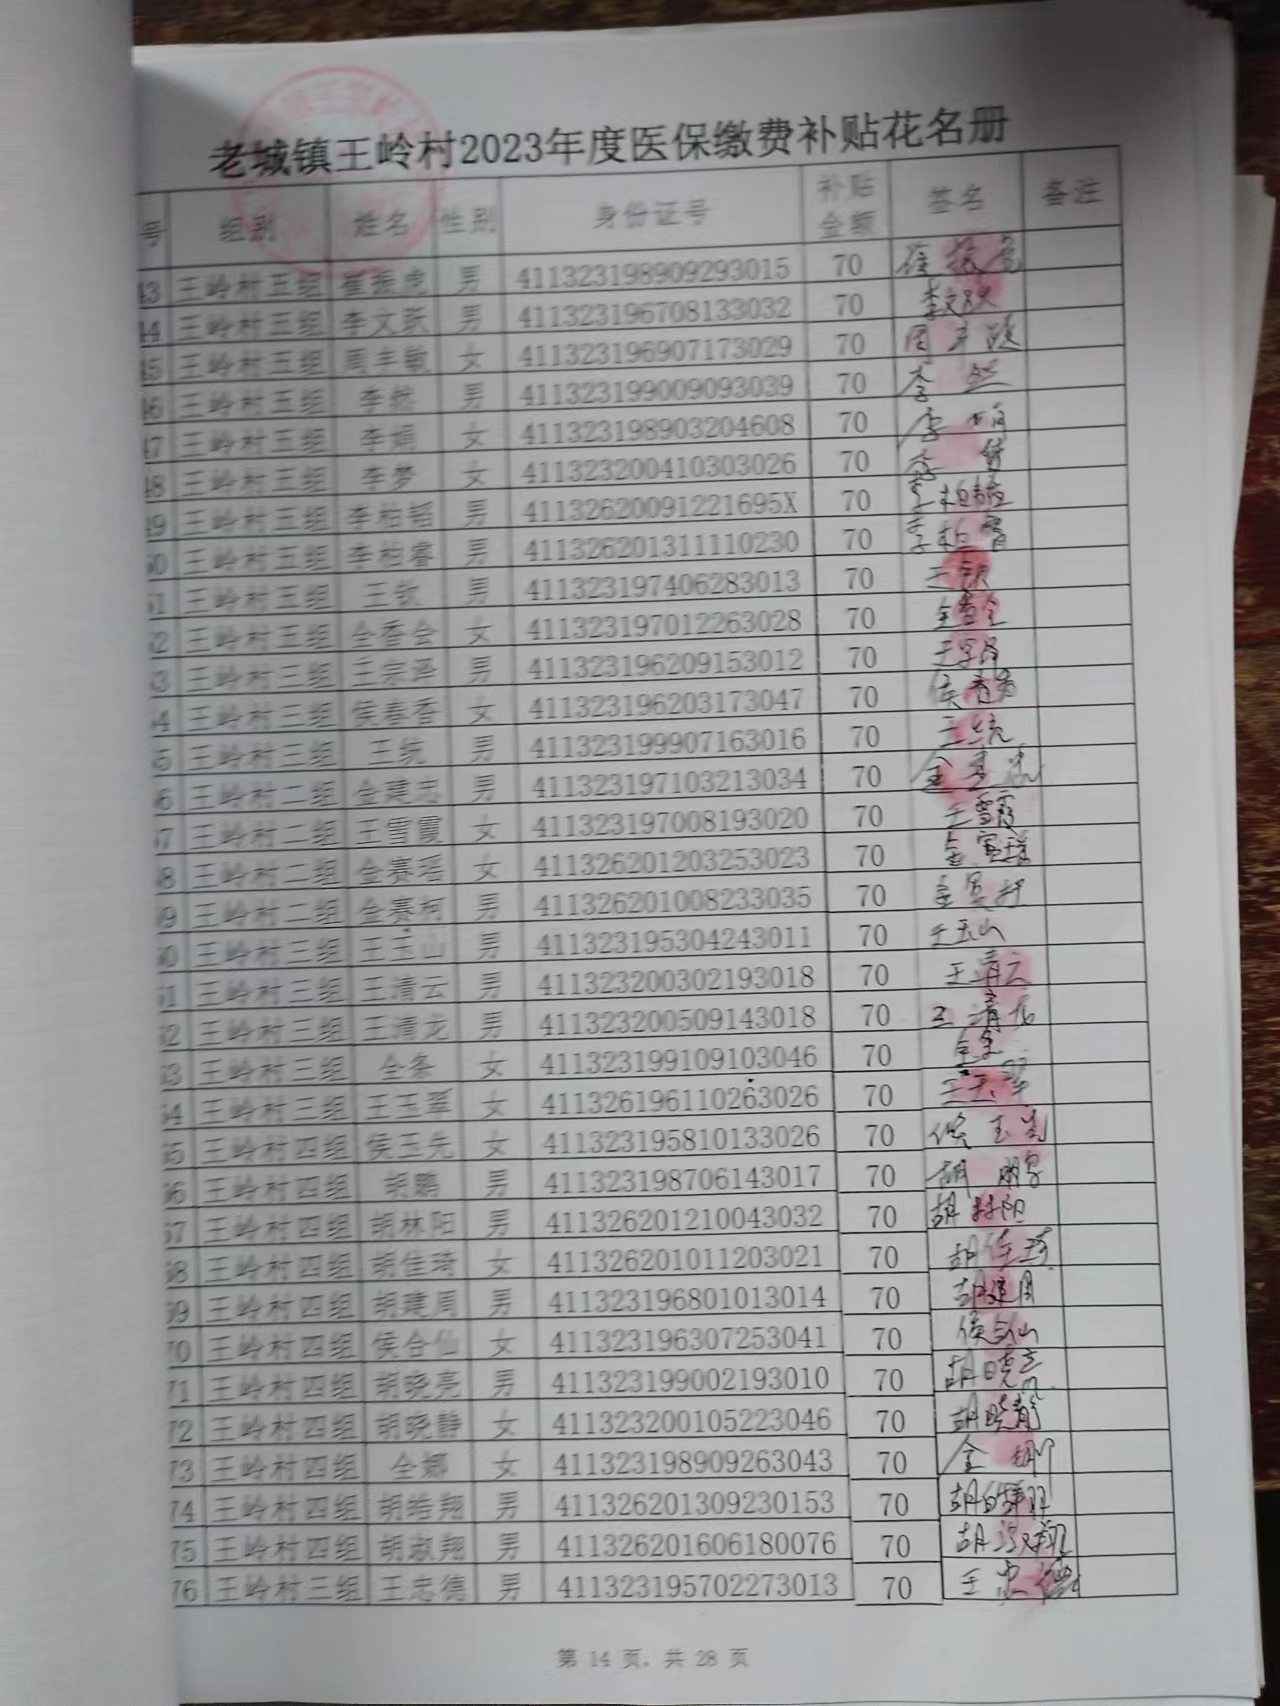 老城镇王岭村2023年度医保缴费补贴花名册
号 组别 姓名 性别 身份证号 补贴金额 签名 备注
43 王岭村五组 崔振虎 男 411323198909293015 70 崔振虎
44 王岭村三组 李文跃 男 411323196708133032 70 李文跃
45 王岭村三组 周丰敏 女 411323196907173029 70 周丰敏
46 王岭村三组 李然 男 411323199009093039 70 李然
47 王岭村三组 李娟 女 411323198903204608 70 李娟
48 王岭村三组 李梦 女 411323200410303026 70 李梦
49 王岭村三组 李柏韬 男 41132620091221695X 70 李柏韬
50 王岭村三组 李柏睿 男 411326201311110230 70 李柏睿
51 王岭村三组 王钦 男 411323197406283013 70 王钦
52 王岭村五组 全香会 女 411323197012263028 70
53 王岭村三组 王宗泽 男 411323196209153012 70 王宗泽
54 王岭村三组 侯春香 女 411323196203173047 70 侯春香
5 王岭村三组 王统 男 411323199907163016 70 王统
6 王岭村二组 金建忠 男 411323197103213034 70 金建忠
7 王岭村二组 王雪霞 女 411323197008193020 70 王雪霞
8 王岭村二组 金赛瑶 女 411326201203253023 70 金赛瑶
9 王岭村二组 金赛柯 男 411326201008233035 70 金赛柯
60 王岭村三组 王玉山 男 411323195304243011 70 王玉山
61 王岭村三组 王清云 男 411323200302193018 70 王清云
62 王岭村三组 王清龙 男 411323200509143018 70 王清龙
63 王岭村三组 全条 女 411323199109103046 70
64 王岭村三组 王玉翠 女 411326196110263026 70 王玉翠
65 王岭村四组 侯玉先 女 411323195810133026 70 侯玉先
66 王岭村四组 胡鹏 男 411323198706143017 70 胡鹏
67 王岭村四组 胡林阳 男 411326201210043032 70 胡林阳
68 王岭村四组 胡佳琦 女 411326201011203021 70 胡佳琦
69 王岭村四组 胡建周 男 411323196801013014 70 胡建周
70 王岭村四组 侯合仙 女 411323196307253041 70 侯合仙
71 王岭村四组 胡晓亮 男 411323199002193010 70 胡晓亮
72 王岭村四组 胡晓静 女 411323200105223046 70 胡晓静
73 王岭村四组 全娜 女 411323198909263043 70 全娜
74 王岭村四组 胡皓翔 男 411326201309230153 70 胡皓翔
75 王岭村四组 胡淑翔 男 411326201606180076 70
76 王岭村三组 王忠德 男 411323195702273013 70 王忠德
第 14 页, 共 28 页